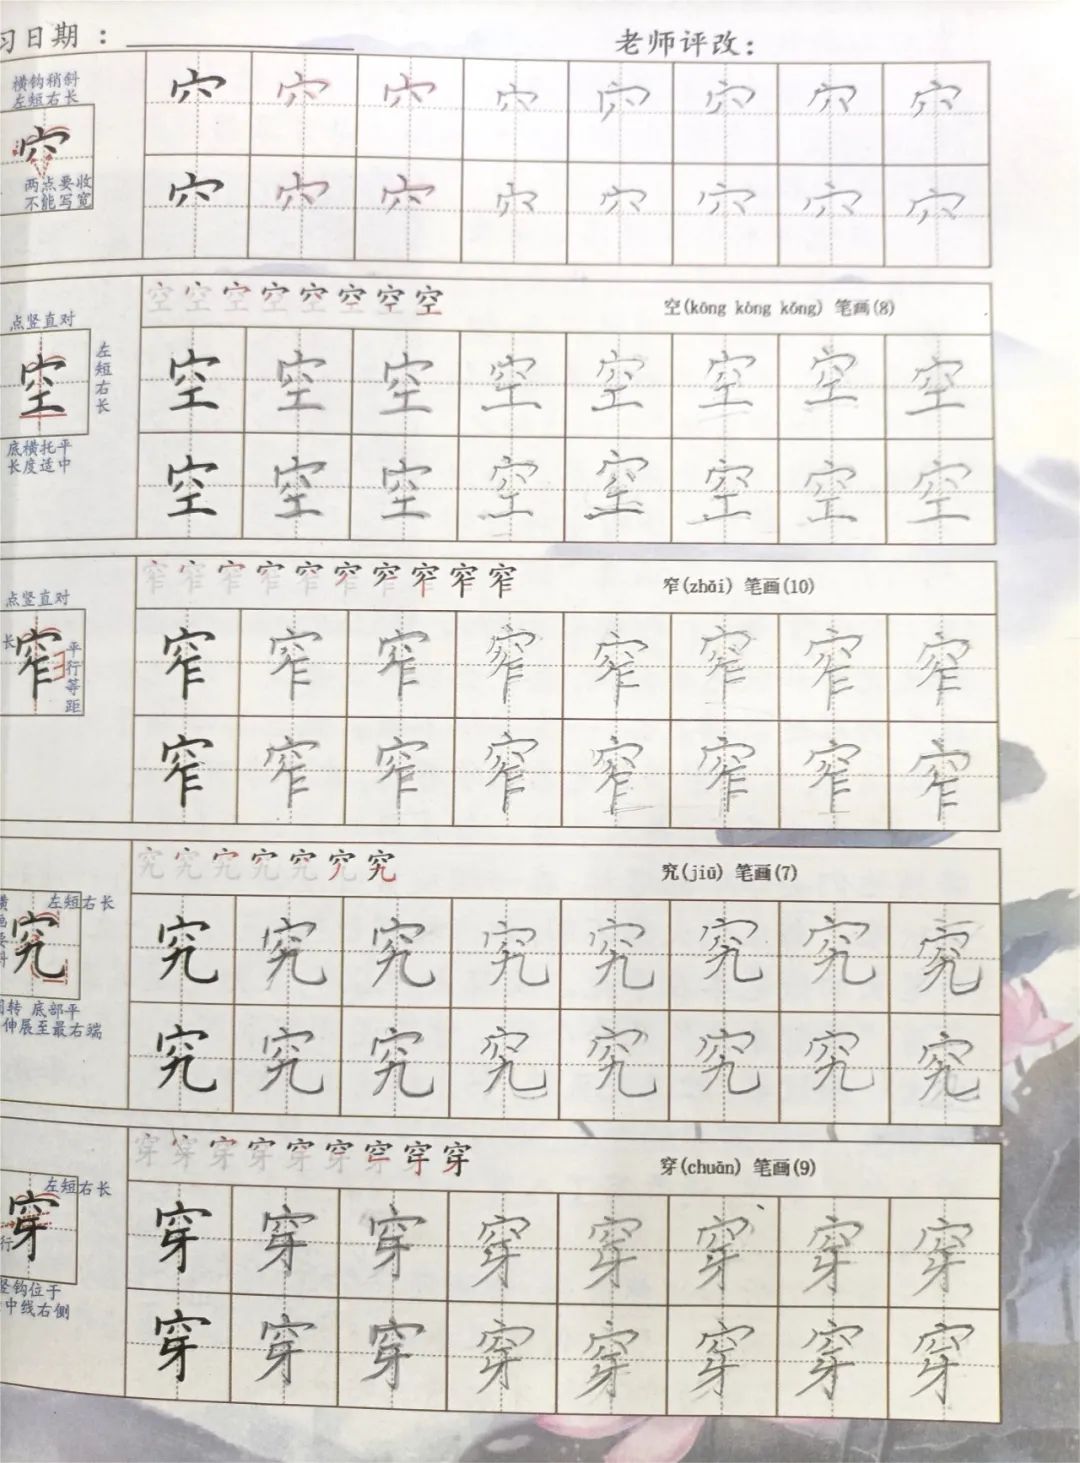 习日期：
老师评改：
横钩稍斜
左短右长
穴
两点要收
不能写宽
穴 穴 穴 穴 穴 穴 穴 穴
穴 穴 穴 穴 穴 穴 穴 穴
空(kōng kòng kǒng) 笔画(8)
点竖直对
空
左短右长
底横托平
长度适中
空 空 空 空 空 空 空 空
空 空 空 空 空 空 空 空
窄(zhǎi) 笔画(10)
点竖直对
长
窄
平行等距
窄 窄 窄 窄 窄 窄 窄 窄
窄 窄 窄 窄 窄 窄 窄 窄
究(jiū) 笔画(7)
左短右长
究
转 底部平
伸展至最右端
究 究 究 究 究 究 究 究
究 究 究 究 究 究 究 究
穿(chuān) 笔画(9)
左短右长
穿
行
竖钩位于
中线右侧
穿 穿 穿 穿 穿 穿 穿 穿
穿 穿 穿 穿 穿 穿 穿 穿